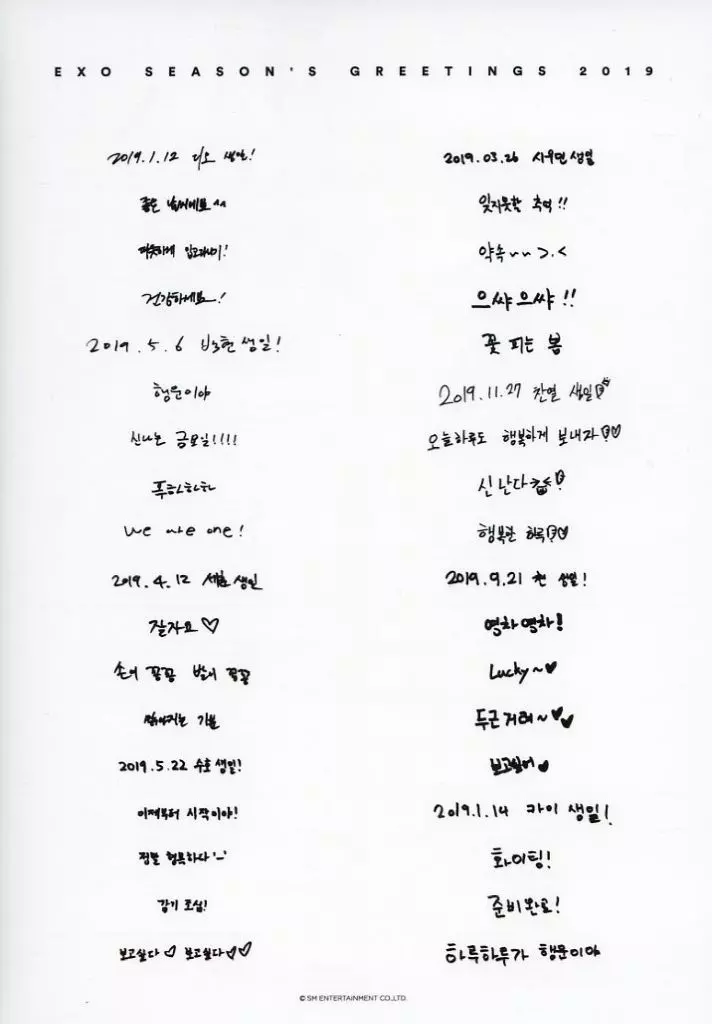 EXO SEASON'S GREETINGS 2019
2019.1.12 디오 생일!
좋은 날씨에요^^
따뜻하게 입고다니기!
건강하세요!
2019.5.6 백현 생일!
행운이야
신나는 금요일!!!!
푸하하하
we are one!
2019.4.12 세훈 생일
잘자요♡
손이 꽁꽁 발이 꽁꽁
맑아지는 기분
2019.5.22 수호 생일!
이제부터 시작이야!
정말 행복하다 '-'
감기 조심!
보고싶다♡ 보고싶다♡♡
2019.03.26 시우민 생일
잊지못할 추억!!
약속~~ >.<
으쌰으쌰!!
꽃 피는 봄
2019.11.27 찬열 생일
오늘하루도 행복하게 보내자♡
신난다
행복한 하루♡
2019.9.21 첸 생일!
영차영차!
Lucky~♥
두근거려~♥♥
보고싶어♥
2019.1.14 카이 생일!
화이팅!
준비완료!
하루하루가 행운이야
© SM ENTERTAINMENT CO.,LTD.